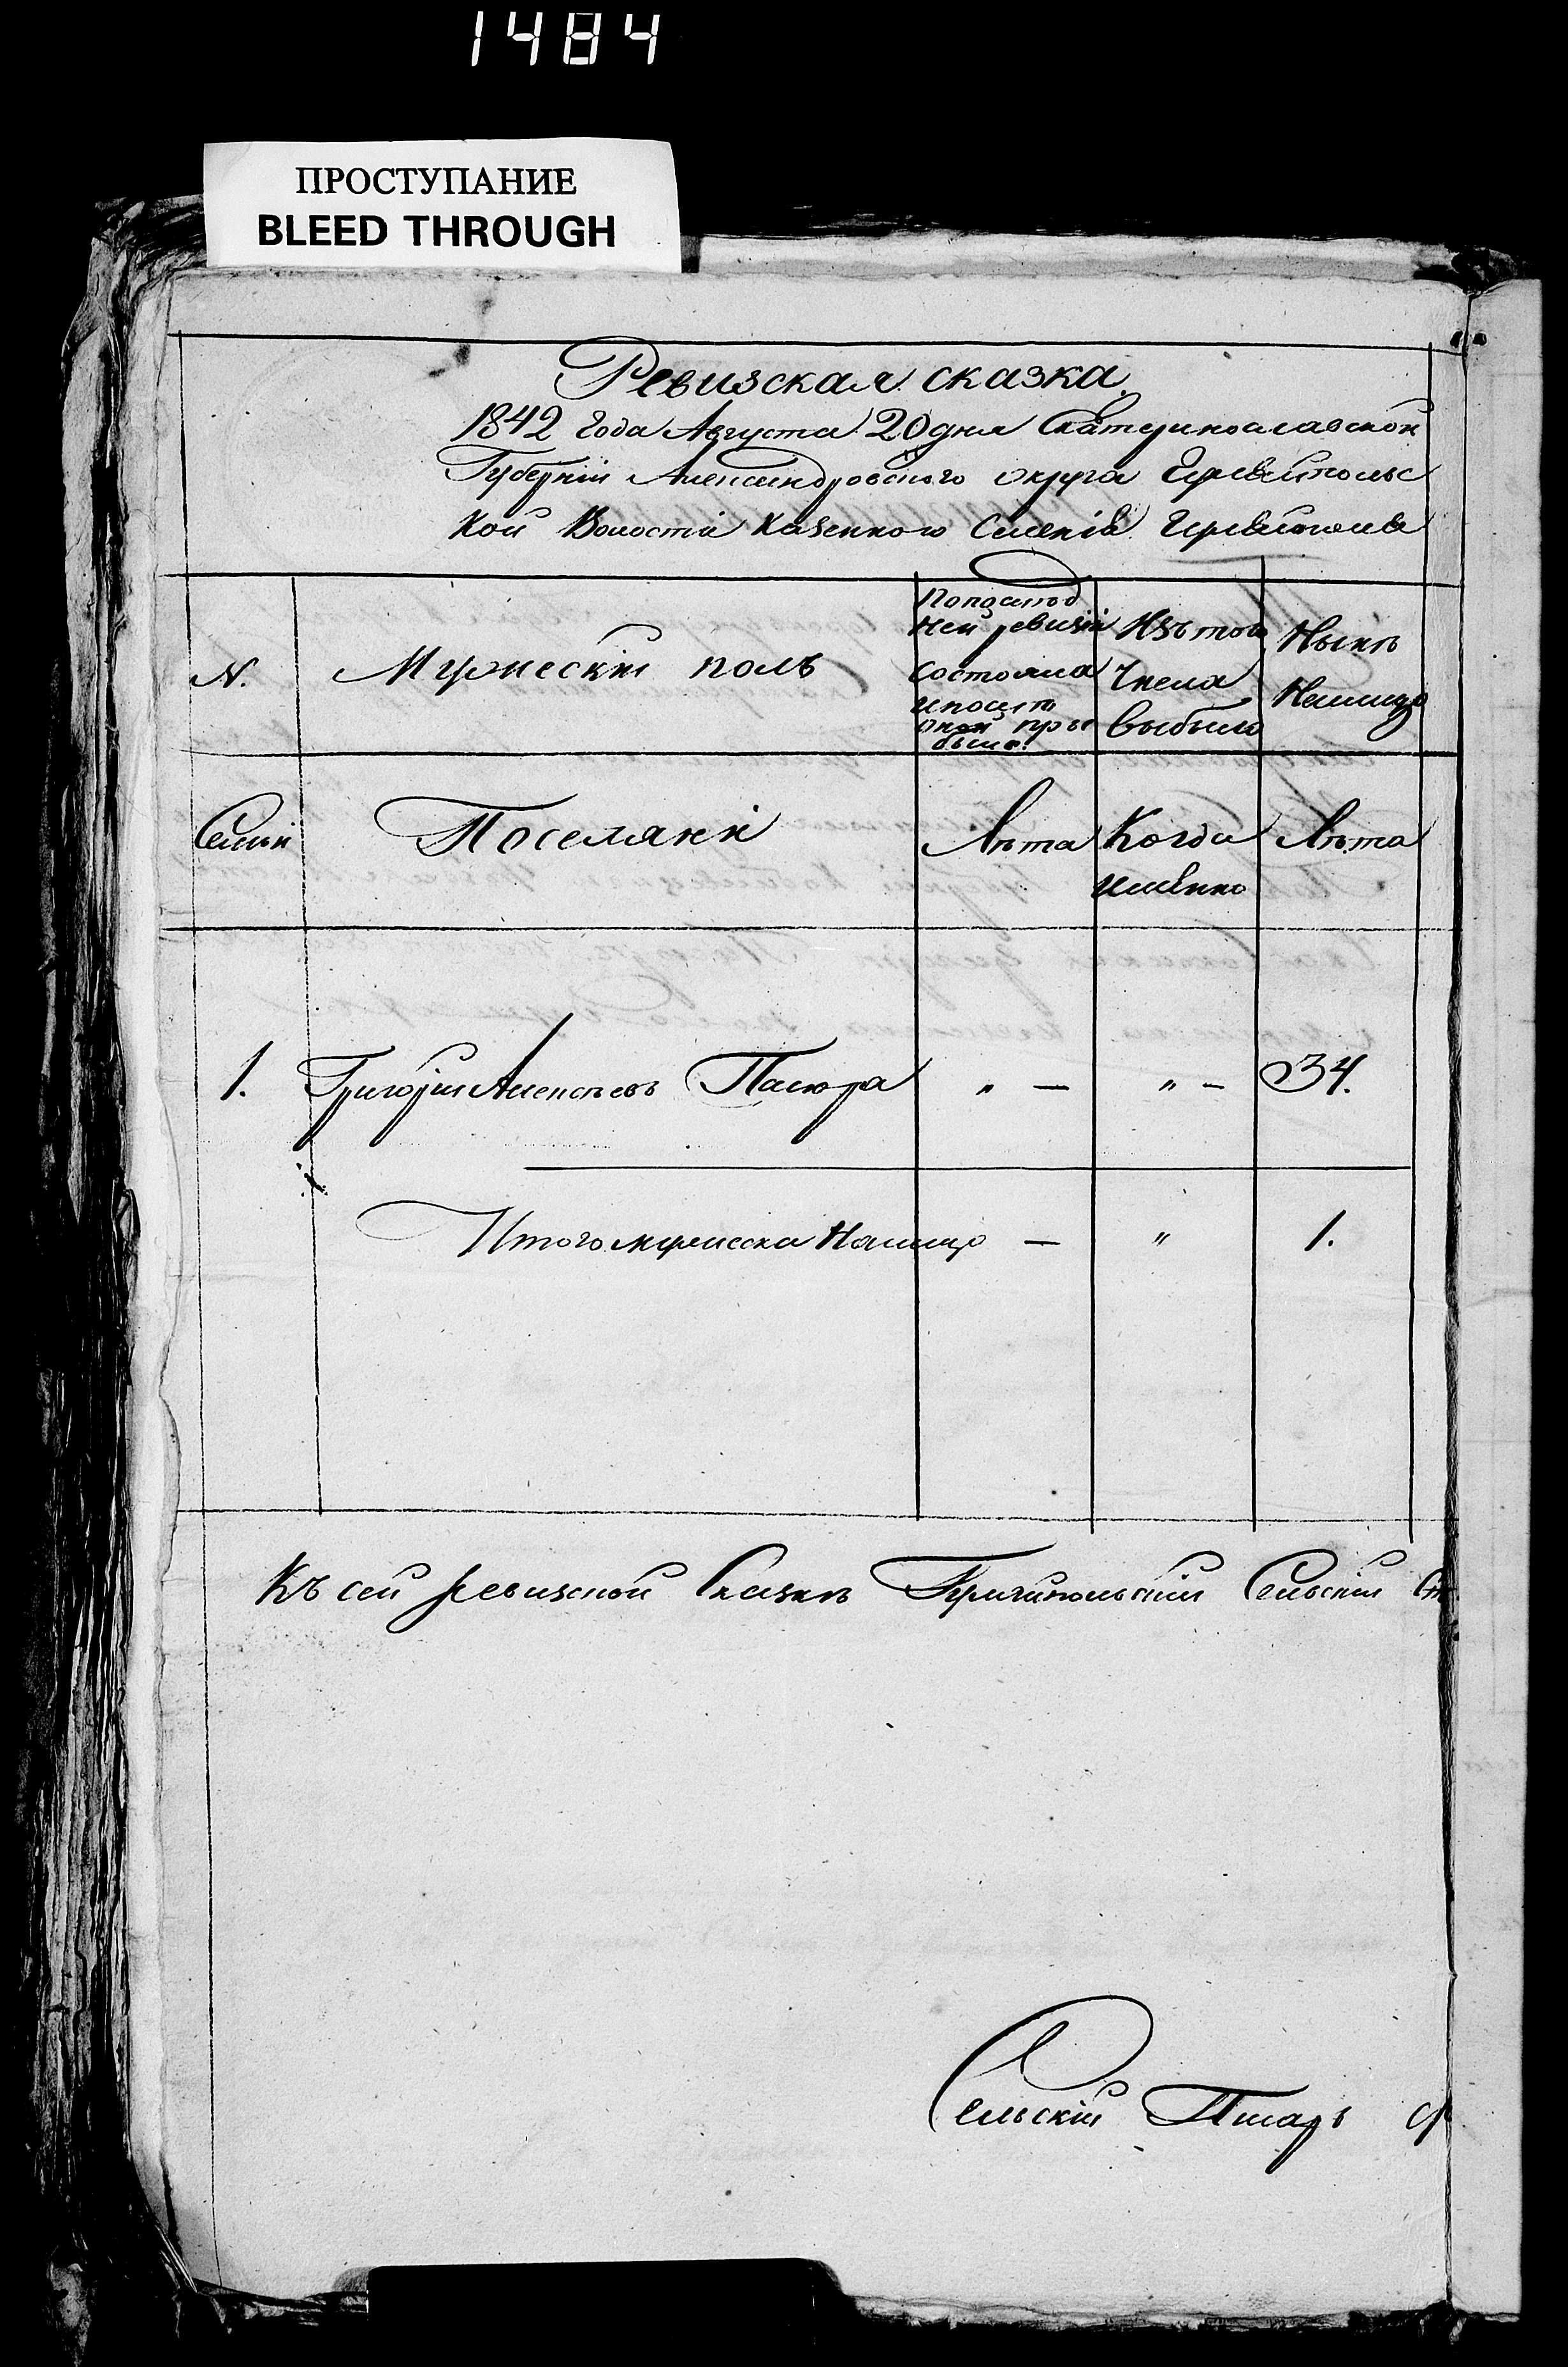 1484
ПРОСТУПАНИЕ
BLEED THROUGH
Ревизская сказка.
1842 года Августа 20 дня Екатеринославской
Губерніи Александровского округа
кой Волости Казенного Селенія
N.
Мужескій полъ
Попослѣд
ней ревизіи
состояло
ипослѣ
оной при
было.
Изъ того
Числа
выбыло
Нынѣ
Налицо
Семьи
Поселяни
Лѣта
Когда
именно
Лѣта
1. Григорій Алексѣевъ „ — „ — 34.
Итого мужеска Налицо — „ 1.
Къ сей ревизской Сказкѣ Сельскій Ст
Сельскій Писарь